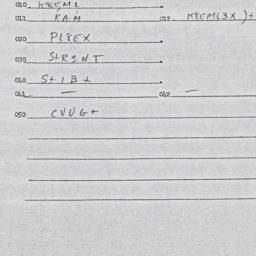 010 K85ML
011 KAM 012 K8EML3X )+
020 PL8EX
030 S+R2NT
040 S+1B+
041 — 042 —
050 CVVG+